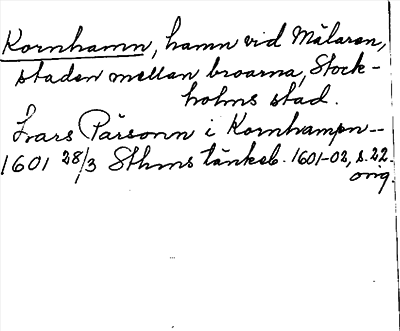 Kornhamn, hamn vid Mälaren,
staden mellan broarna, Stock-
holms stad.
Lars Pärsonn i Kornhampn--
1601 28/3 Sthms tänkeb. 1601-02, s. 22.
orig.